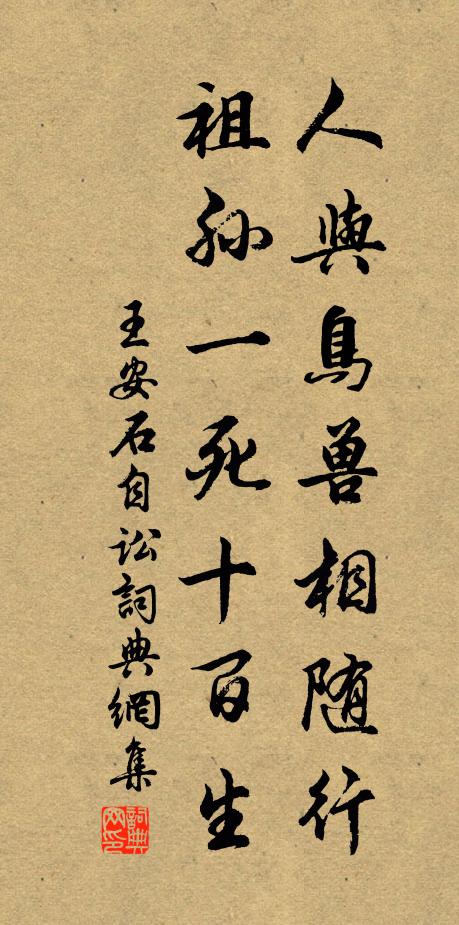 人與鳥獸相随行
祖孫一死十百生
王安石自訟詞典網集
詞典網印